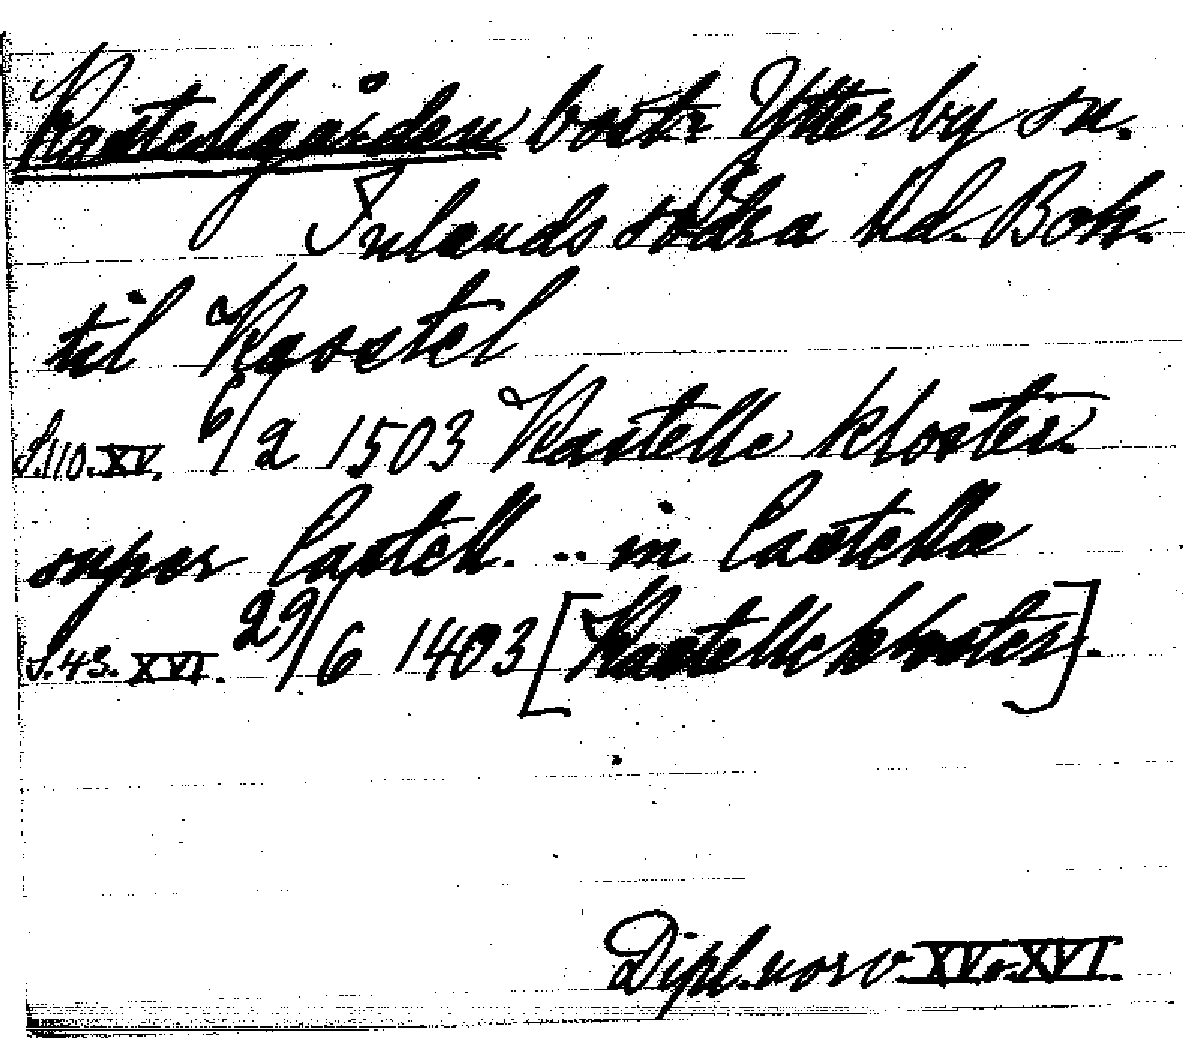 Kastellgården bost. Ytterby sn.
Inlands södra hd. Boh.
til Kaastel
S.110. XV. 6/2 1503 Kastelle kloster.
super Castell. .. in Castella
S.43. XVI. 29/6 1403 [Kastellekloster].
Dipl. norv. XV o XVI.